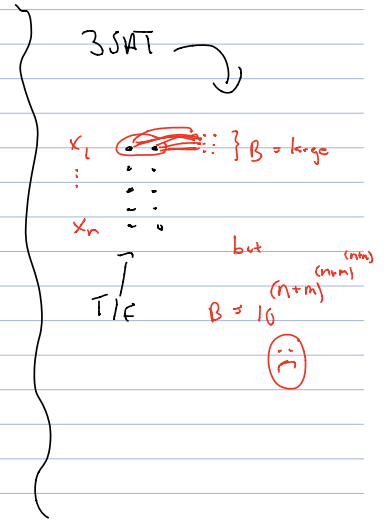 3SAT
x₁ } B = large
⋮
xₙ
but
T/F B = 10^(n+m)^(n+m)^(n+m)